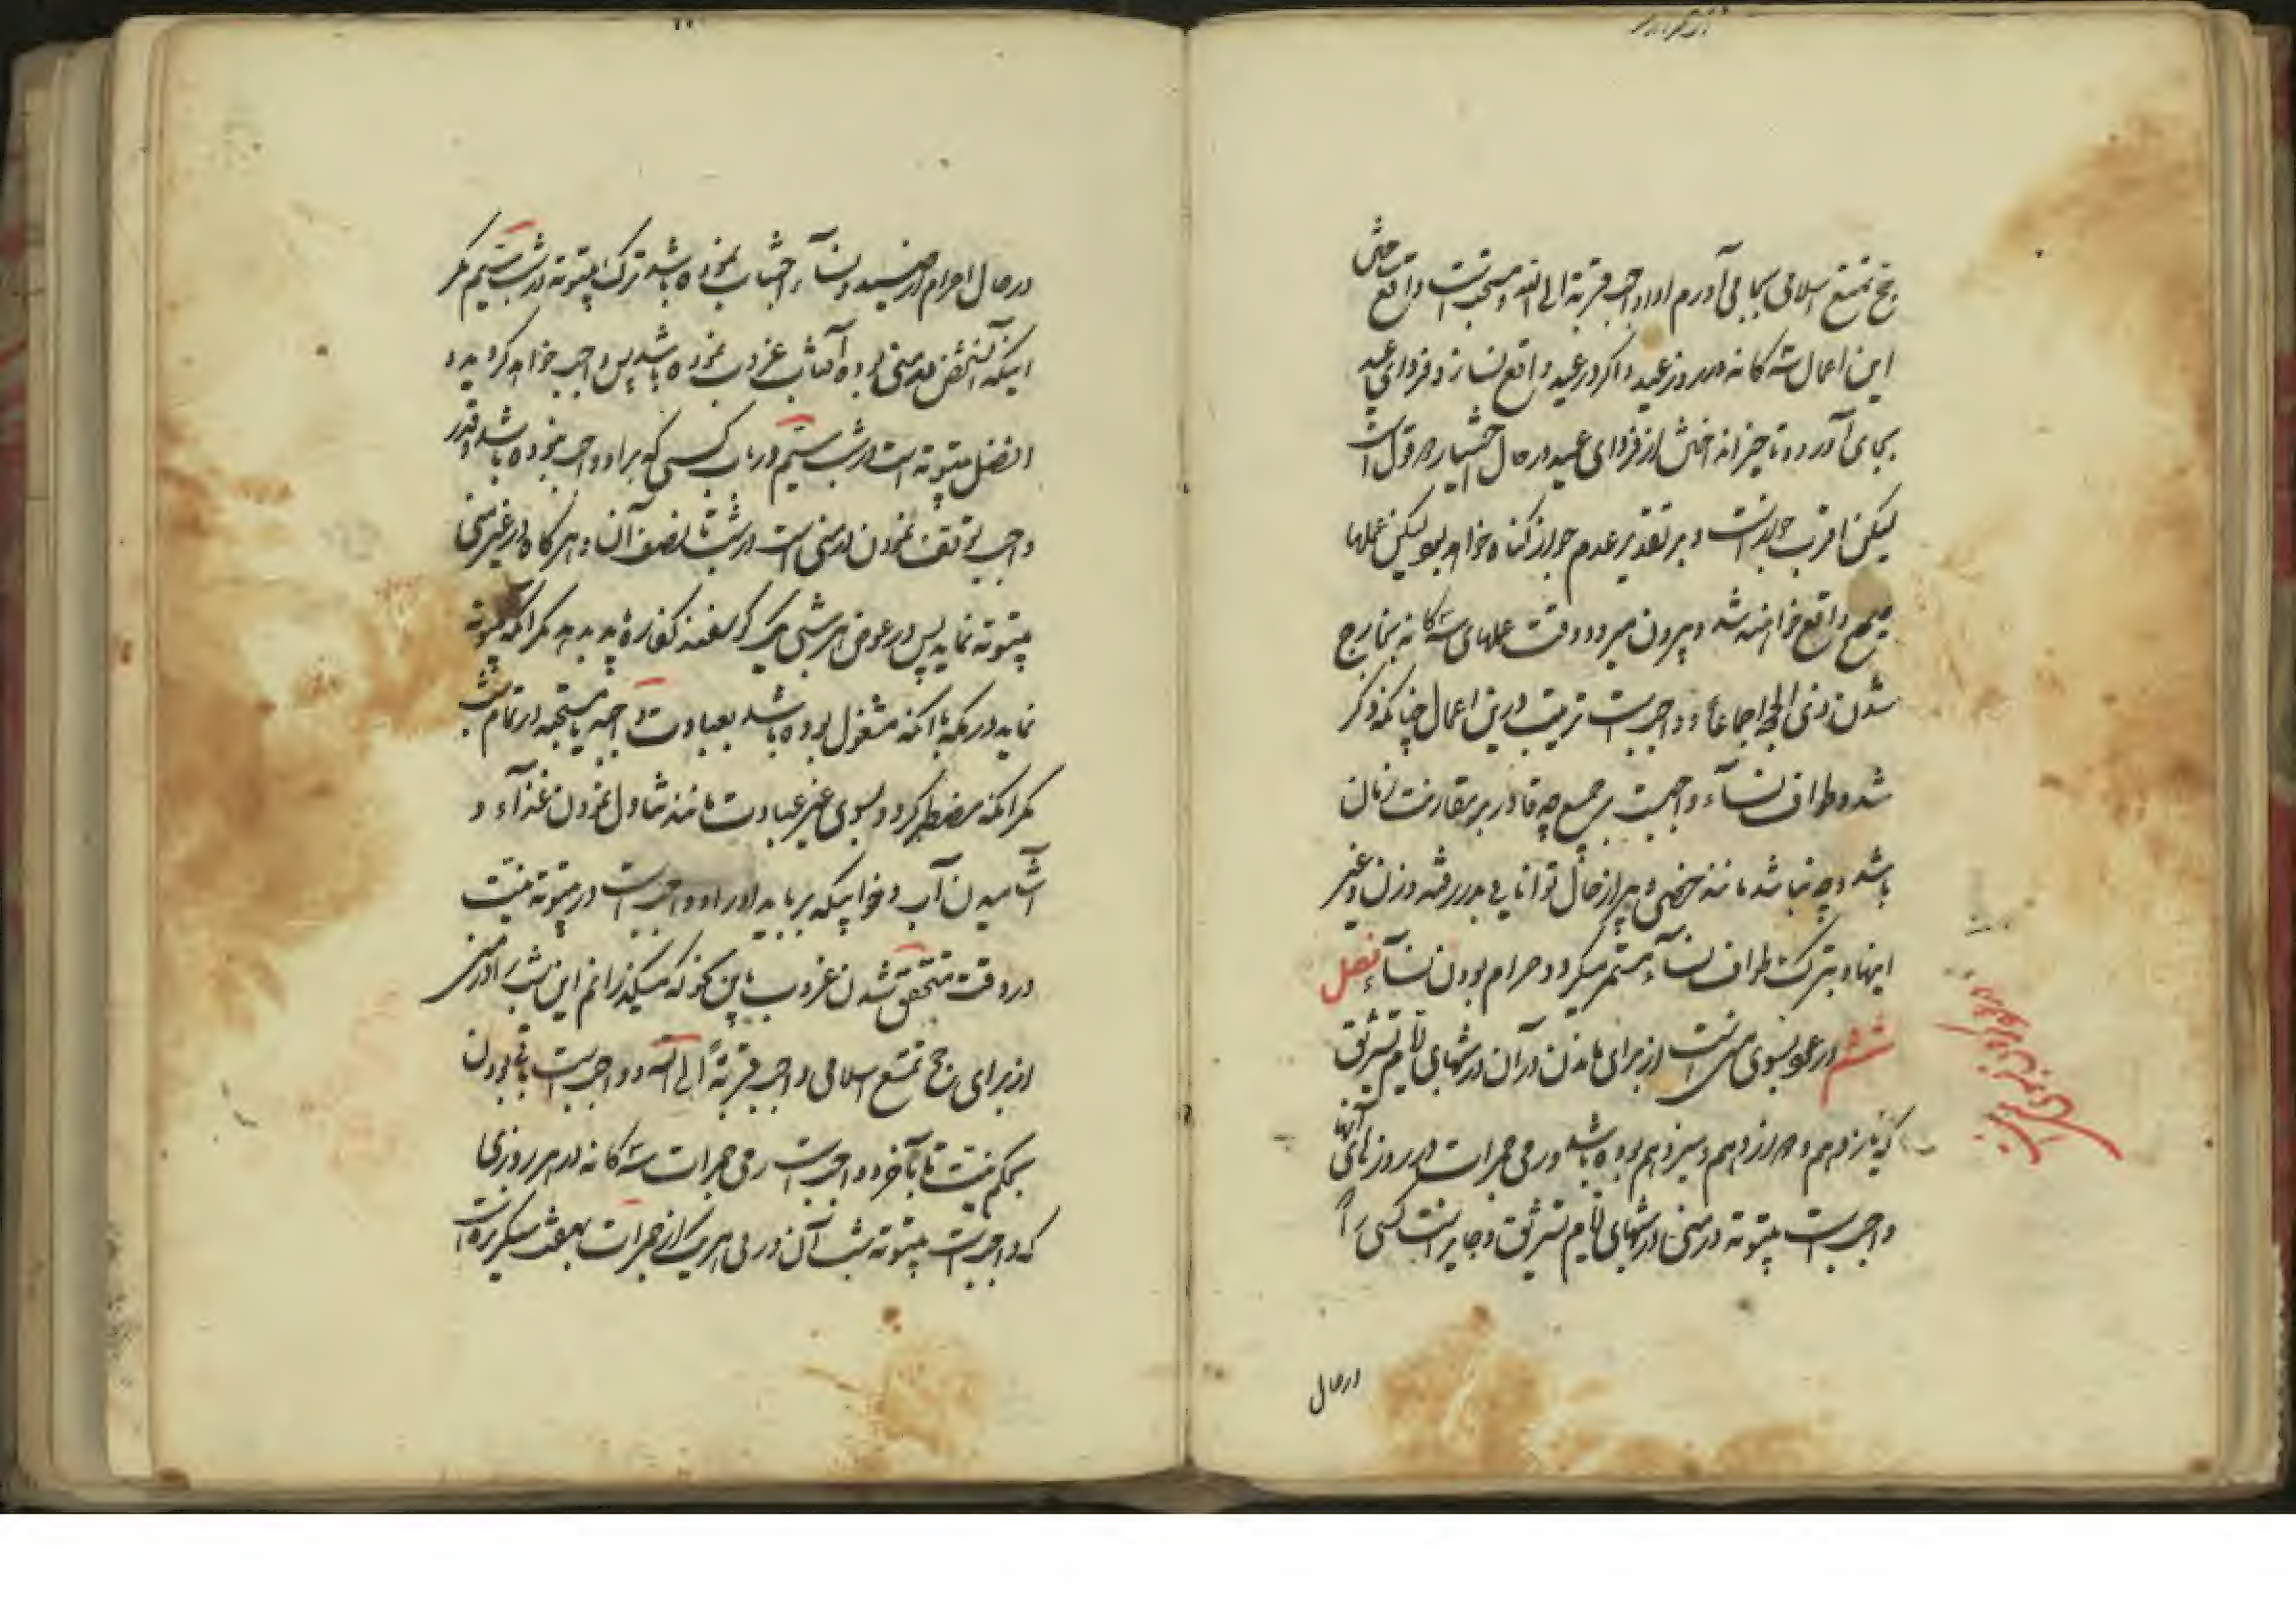 حج تمتع اسلامی بجا می آورم ادا واجب قربة الی الله و مستحبست واقع
این اعمال سه کانه در روز عید و اکر در عید واقع نسازد فردای عید
بجای آورد و تاخیر انداختنش از فردای عید در حال اختیار دو قول است
لیکن اقرب جواز است و بر تقدیر عدم جواز کناه خواهد بود لیکن عملها
صحیح واقع خواهند شد و بیرون میرود وقت عملهای سه کانه بخارج
شدن ذی الحجه اجماعاً و واجبست ترتیب در این اعمال چنانکه ذکر
شد و طواف نسآء واجبست بر جمیع چه قادر بر مقاربت زنان
باشد و چه نباشد مانند خصی و پیر از حال توانایی بدر رفته و زن و غیر
اینها و بترک طواف نسآء مستمر میکردد حرام بودن نسآء فصل
ششم در عود بسوی منی است از برای ماندن در آن در شبهای ایام تشریق
که یازدهم و دوازدهم و سیزدهم بوده باشد و رمی جمرات در روزهای آنها
واجبست بیتوته در منی در شبهای ایام تشریق و جایز است کسی را
در حال
در حال احرام از صید و نسآء اجتناب نموده باشد ترک بیتوته در شب سیم مکر
اینکه آنشخص در منی بوده آفتاب غروب نموده باشد پس واجب خواهد کردید و
افضل بیتوته است در شب سیم در باب کسی که بر او واجب نبوده باشد و قدر
واجب توقف نمودن در منی است در شب تا نصف آن و هر کاه در غیر منی
بیتوته نماید پس در عوض هر شبی یک کوسفند کفاره باید بدهد مکر آنکه بیتوته
نماید در مکه با آنکه مشغول بوده باشد بعبادت واجبه یا مستحبه در تمام شب
مکر آنکه مضطر کردد بسوی غیر عبادت مانند تناول نمودن غذآء و
آشامیدن آب و خوابیکه برباید او را و واجبست در بیتوته نیت
در وقت متحقق شدن غروب باین کونه که میکذرانم این شب را در منی
از برای حج تمتع اسلامی واجب قربةً الی الله و واجبست باقی بودن
بحکم نیت تا بآخر و واجبست رمی جمرات سه کانه در هر روزی
که واجبست بیتوته شب آن در رمی هر یک از جمرات بهفت سنکریزه است